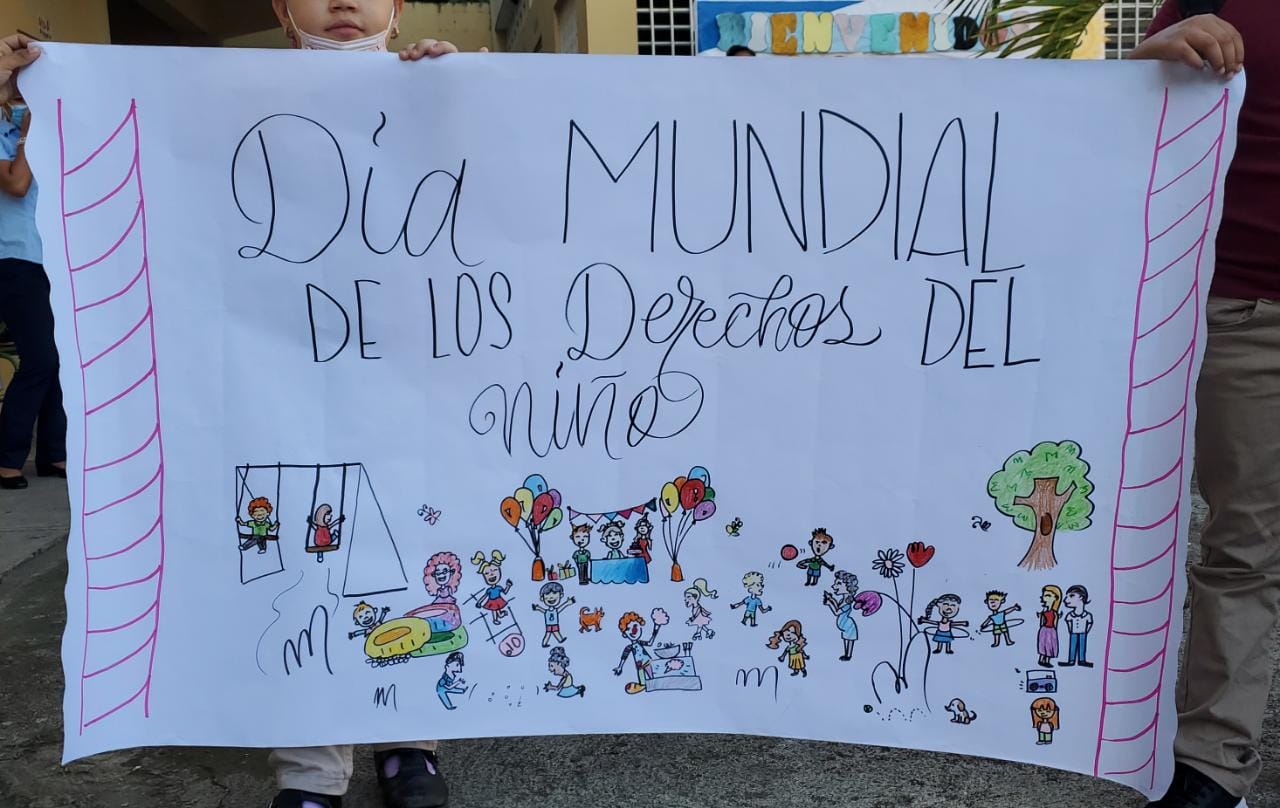 BIENVENID
Día MUNDIAL
DE LOS Derechos DEL
niño